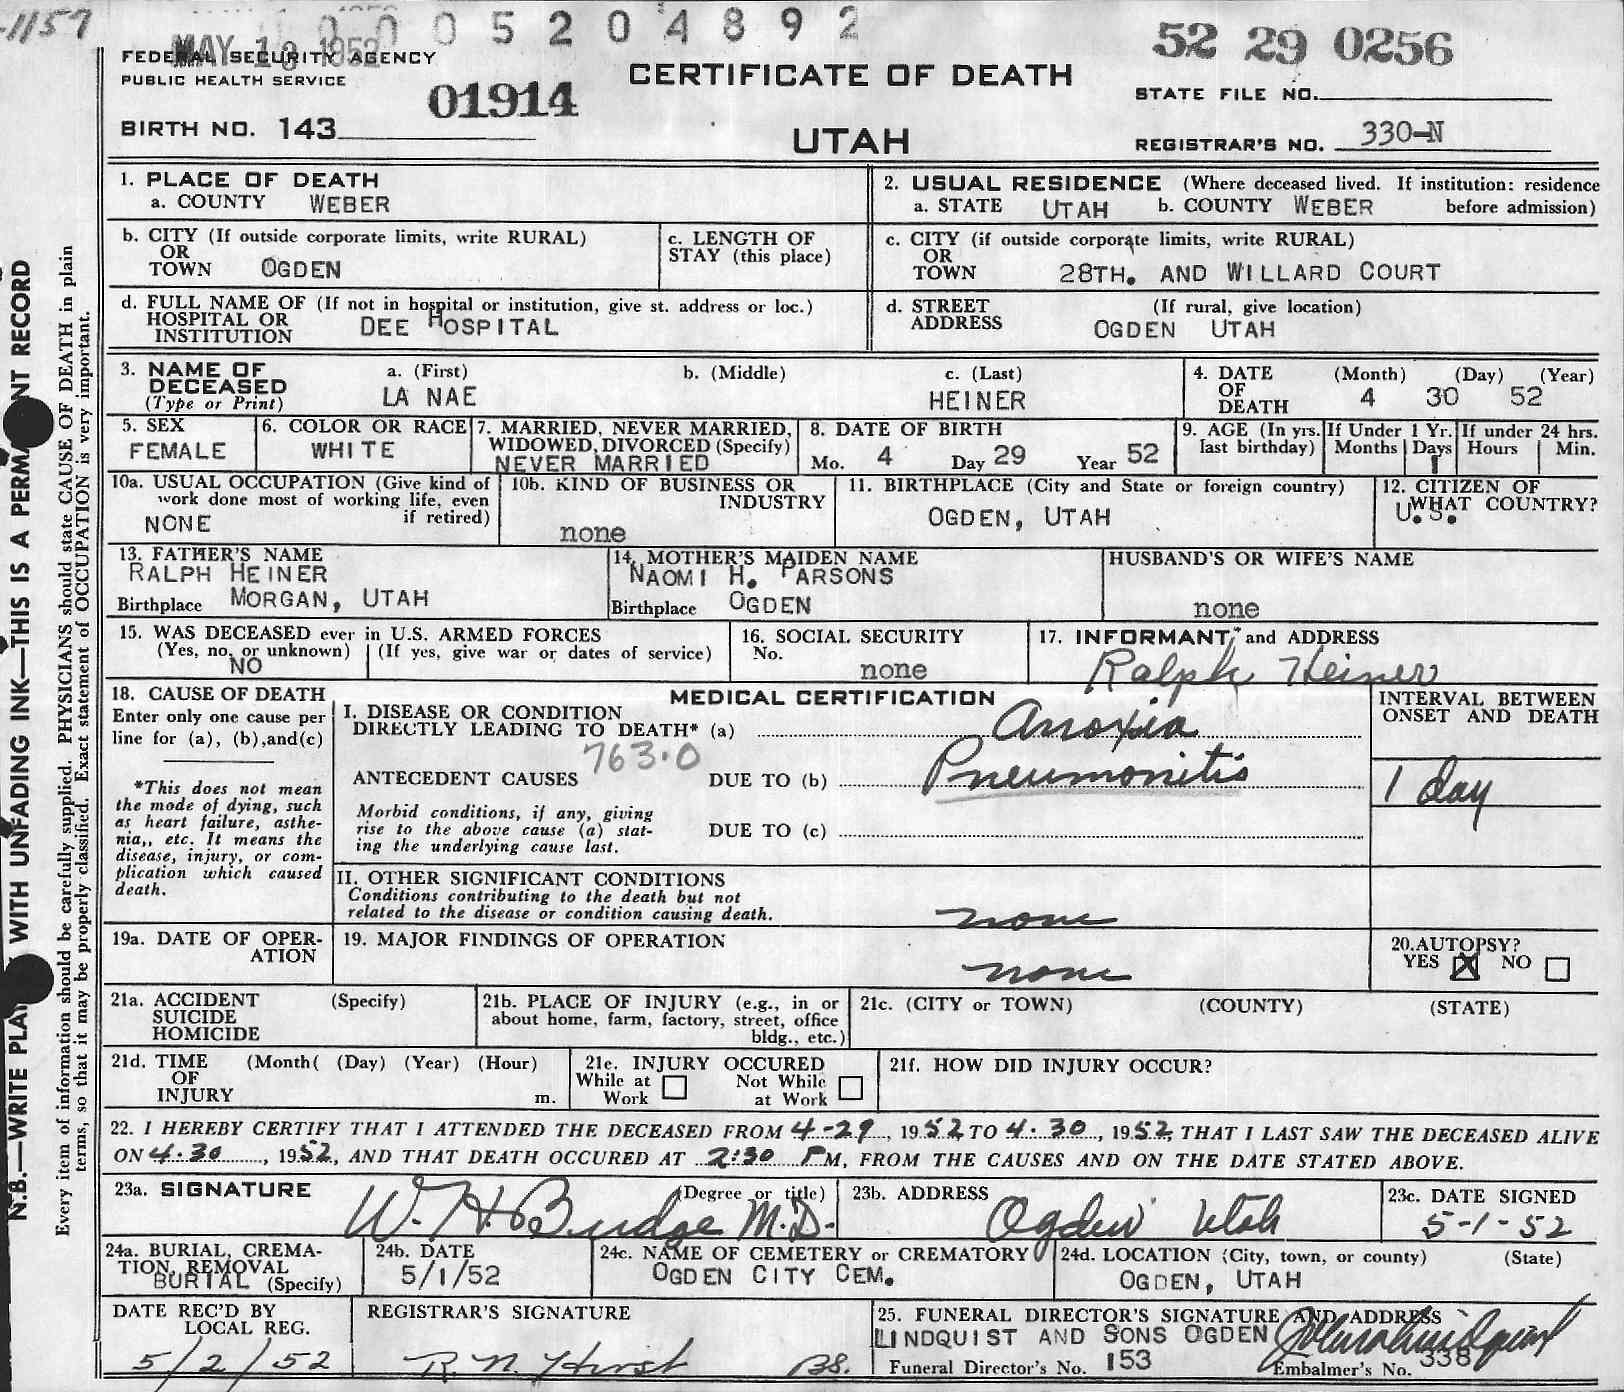 -1157
MAY 13 1952
0 0 0 5 2 0 4 8 9 2
FEDERAL SECURITY AGENCY
PUBLIC HEALTH SERVICE
01914
BIRTH NO. 143
CERTIFICATE OF DEATH
UTAH
52 29 0256
STATE FILE NO.
REGISTRAR'S NO. 330-N
1. PLACE OF DEATH
a. COUNTY WEBER
2. USUAL RESIDENCE (Where deceased lived. If institution: residence
a. STATE UTAH b. COUNTY WEBER before admission)
b. CITY (If outside corporate limits, write RURAL)
OR
TOWN OGDEN
c. LENGTH OF
STAY (this place)
c. CITY (if outside corporate limits, write RURAL)
OR
TOWN 28TH. AND WILLARD COURT
d. FULL NAME OF (If not in hospital or institution, give st. address or loc.)
HOSPITAL OR
INSTITUTION DEE HOSPITAL
d. STREET (If rural, give location)
ADDRESS OGDEN UTAH
3. NAME OF
DECEASED
(Type or Print)
a. (First) b. (Middle) c. (Last)
LA NAE HEINER
4. DATE (Month) (Day) (Year)
OF
DEATH 4 30 52
5. SEX
FEMALE
6. COLOR OR RACE
WHITE
7. MARRIED, NEVER MARRIED,
WIDOWED, DIVORCED (Specify)
NEVER MARRIED
8. DATE OF BIRTH
Mo. 4 Day 29 Year 52
9. AGE (In yrs.
last birthday)
If Under 1 Yr.
Months Days
1
If under 24 hrs.
Hours Min.
10a. USUAL OCCUPATION (Give kind of
work done most of working life, even
if retired)
NONE
10b. KIND OF BUSINESS OR
INDUSTRY
none
11. BIRTHPLACE (City and State or foreign country)
OGDEN, UTAH
12. CITIZEN OF
WHAT COUNTRY?
U.S.
13. FATHER'S NAME
RALPH HEINER
Birthplace MORGAN, UTAH
14. MOTHER'S MAIDEN NAME
NAOMI H. PARSONS
Birthplace OGDEN
HUSBAND'S OR WIFE'S NAME
none
15. WAS DECEASED ever in U.S. ARMED FORCES
(Yes, no, or unknown) (If yes, give war or dates of service)
NO
16. SOCIAL SECURITY
No.
none
17. INFORMANT, and ADDRESS
Ralph Heiner
18. CAUSE OF DEATH
Enter only one cause per
line for (a), (b),and(c)
*This does not mean
the mode of dying, such
as heart failure, asthe-
nia,, etc. It means the
disease, injury, or com-
plication which caused
death.
MEDICAL CERTIFICATION
I. DISEASE OR CONDITION
DIRECTLY LEADING TO DEATH* (a) Anoxia
763.0
ANTECEDENT CAUSES DUE TO (b) Pneumonitis
Morbid conditions, if any, giving
rise to the above cause (a) stat-
ing the underlying cause last.
DUE TO (c)
INTERVAL BETWEEN
ONSET AND DEATH
1 day
II. OTHER SIGNIFICANT CONDITIONS
Conditions contributing to the death but not
related to the disease or condition causing death.
none
19a. DATE OF OPER-
ATION
19. MAJOR FINDINGS OF OPERATION
none
20.AUTOPSY?
YES X NO
21a. ACCIDENT (Specify)
SUICIDE
HOMICIDE
21b. PLACE OF INJURY (e.g., in or
about home, farm, factory, street, office
bldg., etc.)
21c. (CITY or TOWN) (COUNTY) (STATE)
21d. TIME (Month( (Day) (Year) (Hour)
OF
INJURY m.
21e. INJURY OCCURED
While at Not While
Work at Work
21f. HOW DID INJURY OCCUR?
22. I HEREBY CERTIFY THAT I ATTENDED THE DECEASED FROM 4-29, 1952 TO 4.30, 1952, THAT I LAST SAW THE DECEASED ALIVE
ON 4.30, 1952, AND THAT DEATH OCCURED AT 2:30 PM, FROM THE CAUSES AND ON THE DATE STATED ABOVE.
23a. SIGNATURE (Degree or title)
W. H. Budge M.D.
23b. ADDRESS
Ogden Utah
23c. DATE SIGNED
5-1-52
24a. BURIAL, CREMA-
TION, REMOVAL
BURIAL (Specify)
24b. DATE
5/1/52
24c. NAME OF CEMETERY or CREMATORY
OGDEN CITY CEM.
24d. LOCATION (City, town, or county) (State)
OGDEN, UTAH
DATE REC'D BY
LOCAL REG.
5/2/52
REGISTRAR'S SIGNATURE
R. N. Hirst BS.
25. FUNERAL DIRECTOR'S SIGNATURE AND ADDRESS
LINDQUIST AND SONS OGDEN
Funeral Director's No. 153
Embalmer's No. 338
N.B.—WRITE WITH UNFADING INK—THIS IS A RECORD
Every item of information should be carefully supplied. PHYSICIANS should state CAUSE OF DEATH in plain
terms, so that it may be properly classified. Exact statement of OCCUPATION is very important.